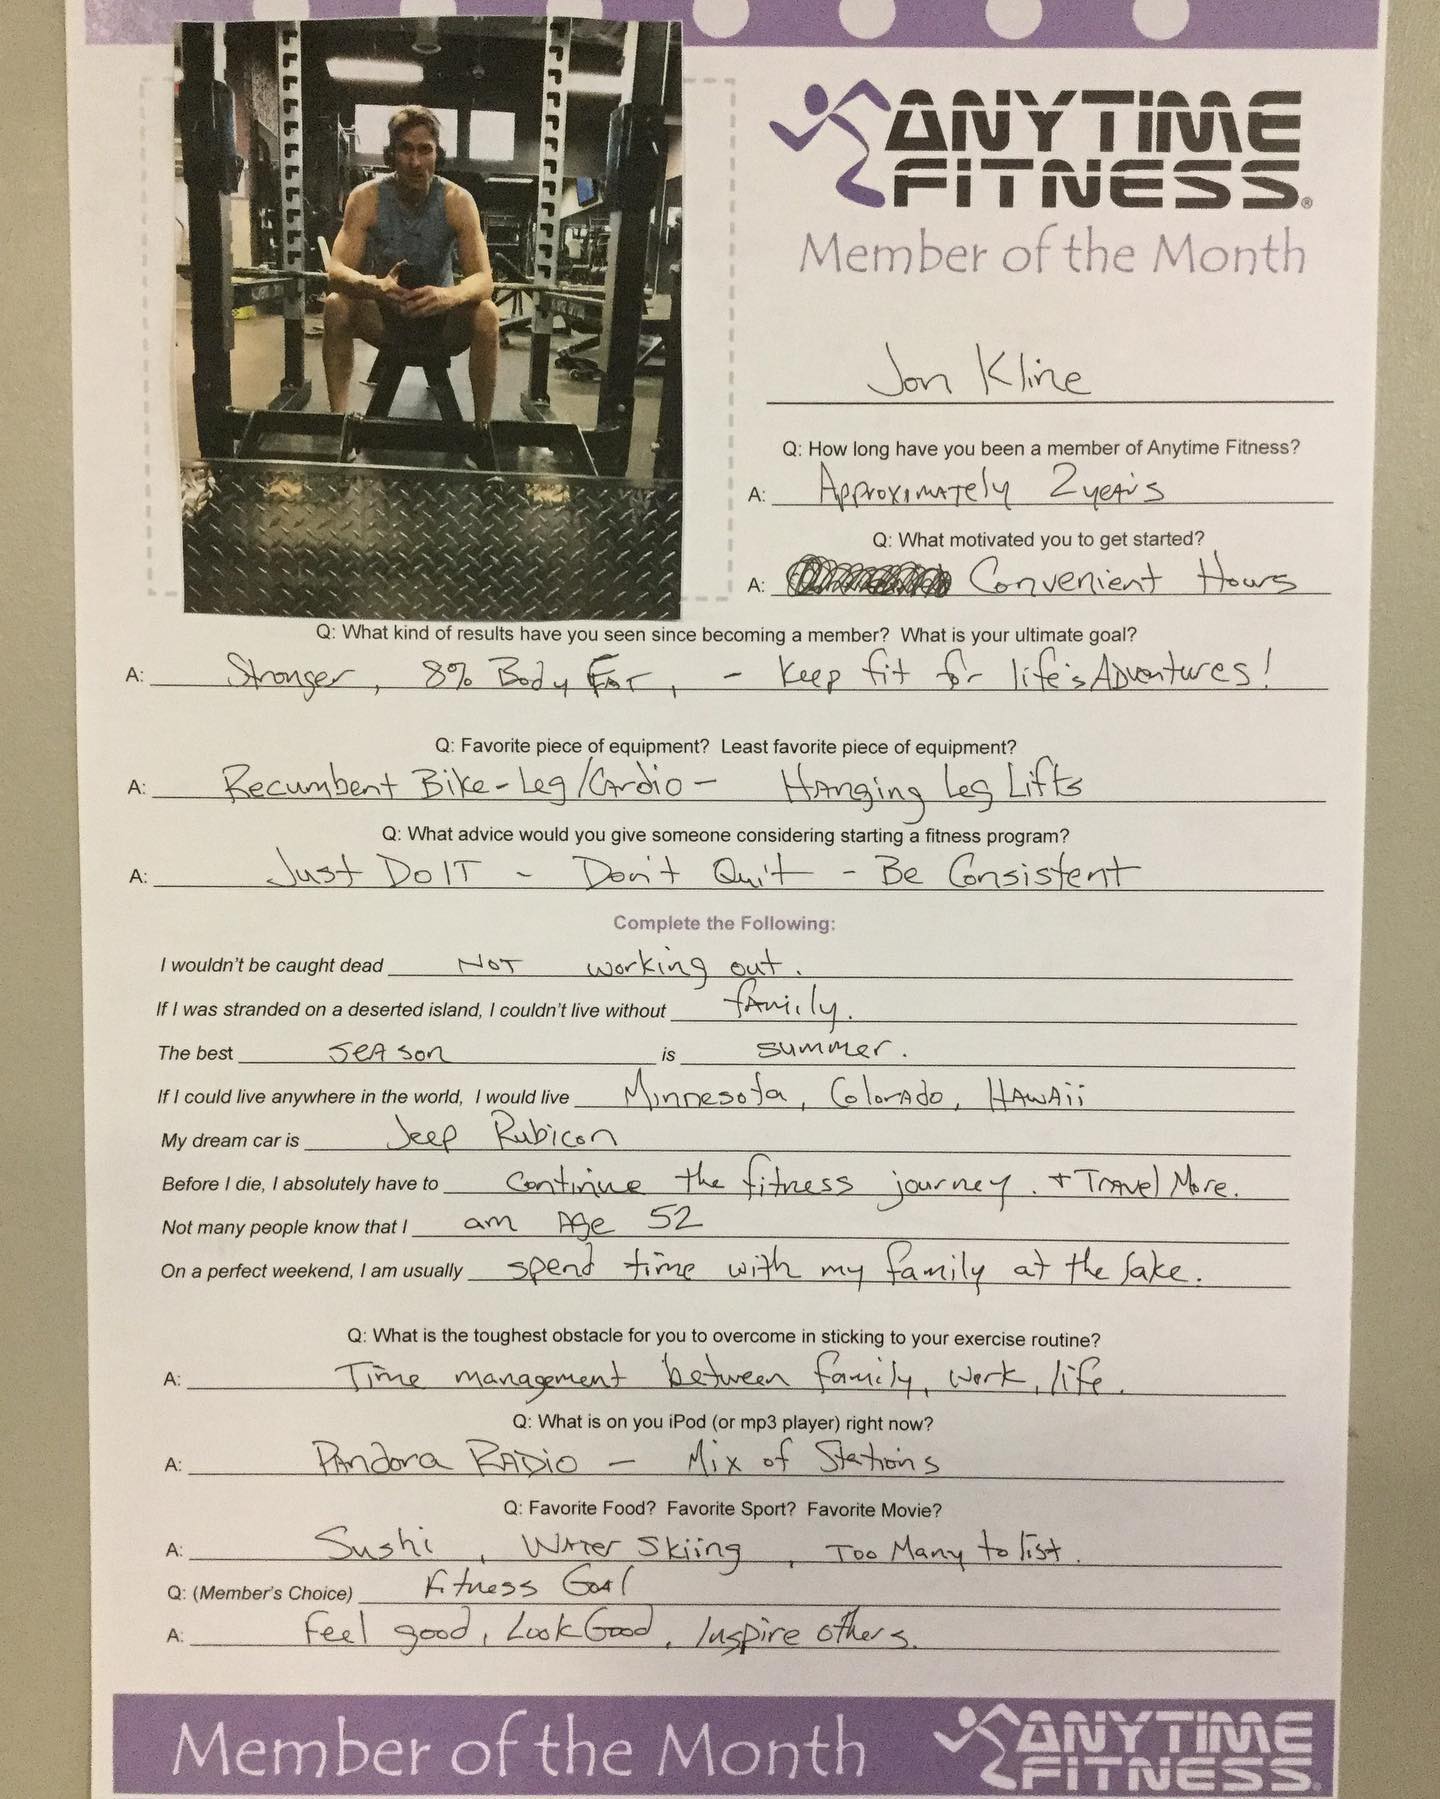 ANYTIME
FITNESS®
Member of the Month
Jon Kline
Q: How long have you been a member of Anytime Fitness?
A: Approximately 2 years
Q: What motivated you to get started?
A: Convenient Hours
Q: What kind of results have you seen since becoming a member? What is your ultimate goal?
A: Stronger, 8% Body Fat, - Keep fit for life's Adventures!
Q: Favorite piece of equipment? Least favorite piece of equipment?
A: Recumbent Bike - Leg/Cardio - Hanging Leg Lifts
Q: What advice would you give someone considering starting a fitness program?
A: Just Do IT - Don't Quit - Be Consistent
Complete the Following:
I wouldn't be caught dead NOT working out.
If I was stranded on a deserted island, I couldn't live without family.
The best season is summer.
If I could live anywhere in the world, I would live Minnesota, Colorado, Hawaii
My dream car is Jeep Rubicon
Before I die, I absolutely have to continue the fitness journey. + Travel More.
Not many people know that I am Age 52
On a perfect weekend, I am usually spend time with my family at the lake.
Q: What is the toughest obstacle for you to overcome in sticking to your exercise routine?
A: Time management between family, work, life.
Q: What is on you iPod (or mp3 player) right now?
A: Pandora RADIO - Mix of Stations
Q: Favorite Food? Favorite Sport? Favorite Movie?
A: Sushi, Water Skiing, Too Many to list.
Q: (Member's Choice) Fitness Goal
A: Feel good, Look Good, Inspire others.
Member of the Month
ANYTIME
FITNESS®